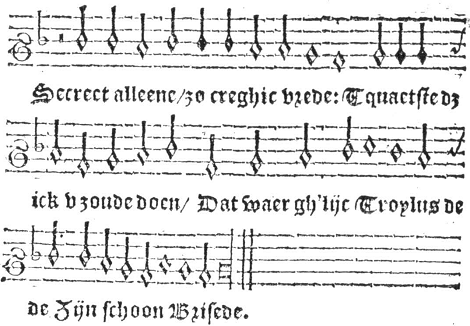 Secreet alleene/zo creghic vrede: Tquactste dz
ick v zoude doen/ Dat waer gh'lijc Troylus de
de Zijn schoon Brisede.